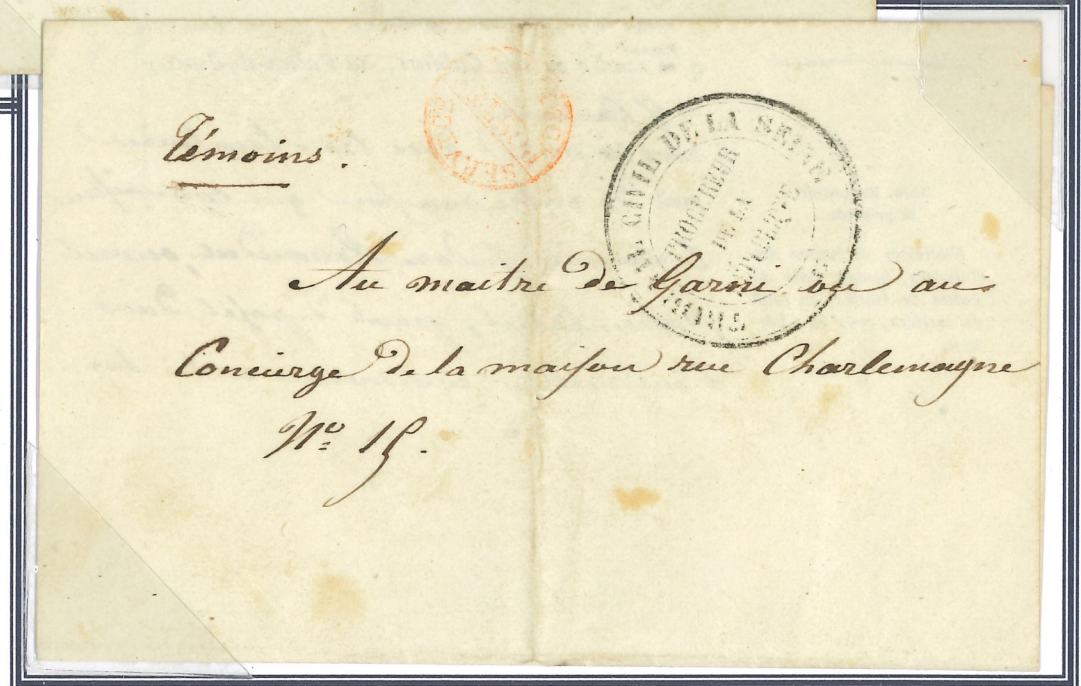 Témoins.
CIVIL DE LA SEINE
PROCUREUR
DE LA
SERVICE
Au maitre de Garni ou au
Concierge de la maison rue Charlemagne
Nº 15.